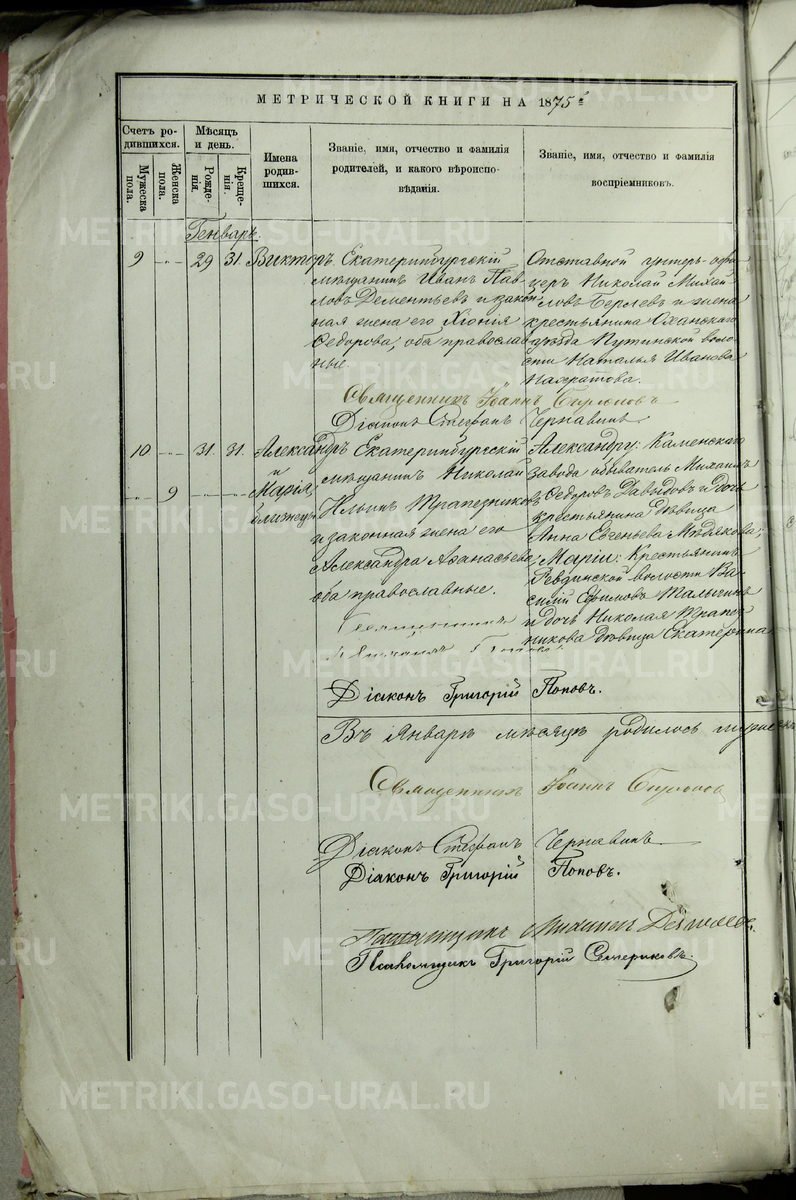 МЕТРИЧЕСКОЙ КНИГИ НА 1875 г
Счетъ родившихся.
Мужеска пола.
Женска пола.
Мѣсяцъ и день.
Рожденія.
Крещенія.
Имена родившихся.
Званіе, имя, отчество и фамилія
родителей, и какого вѣроиспо-
вѣданія.
Званіе, имя, отчество и фамилія
воспріемниковъ.
Генварь.
9 29 31. Викторъ
Екатеринбургскій
мѣщанинъ Иванъ Пав-
ловъ Дементьевъ и закон-
ная жена его Хіонія
Федорова, оба православ-
ные.
Отставной унтеръ-офи-
церъ Николай Михай-
ловъ и жена
крестьянина Оханскаго
уѣзда Путинской воло-
сти Наталья Иванова
Священникъ Іоаннъ
Діаконъ Стефанъ Чернавинъ
10 31. 31. Александръ
и
9 Марія,
близнецы
Екатеринбургскій
мѣщанинъ Николай
Ильинъ Трапезниковъ
и законная жена его
Александра Аѳанасьева,
оба православные.
Александру: Каменскаго
завода обыватель Михаилъ
Федоровъ Давыдовъ и дочь
крестьянина дѣвица
Анна Евгеньева Медвякова;
Маріи: Крестьянинъ
Ревдинской волости Ва-
силій Ефимовъ Талыгинъ
и дочь Николая Трапез-
никова дѣвица Екатерина
Діаконъ Григорій Поповъ.
Въ Январѣ мѣсяцѣ родилось
Священникъ Іоаннъ
Діаконъ Стефанъ Чернавинъ
Діаконъ Григорій Поповъ.
Псаломщикъ Михаилъ
Псаломщикъ Григорій Семериковъ.
METRIKI.GASO-URAL.RU